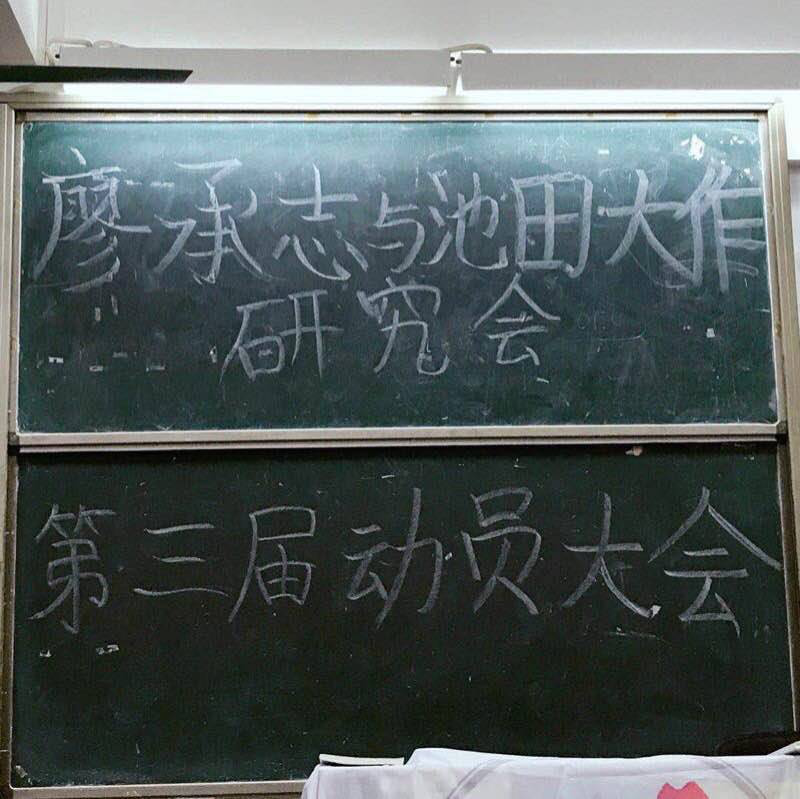 廖承志与池田大作
研究会
第三届动员大会